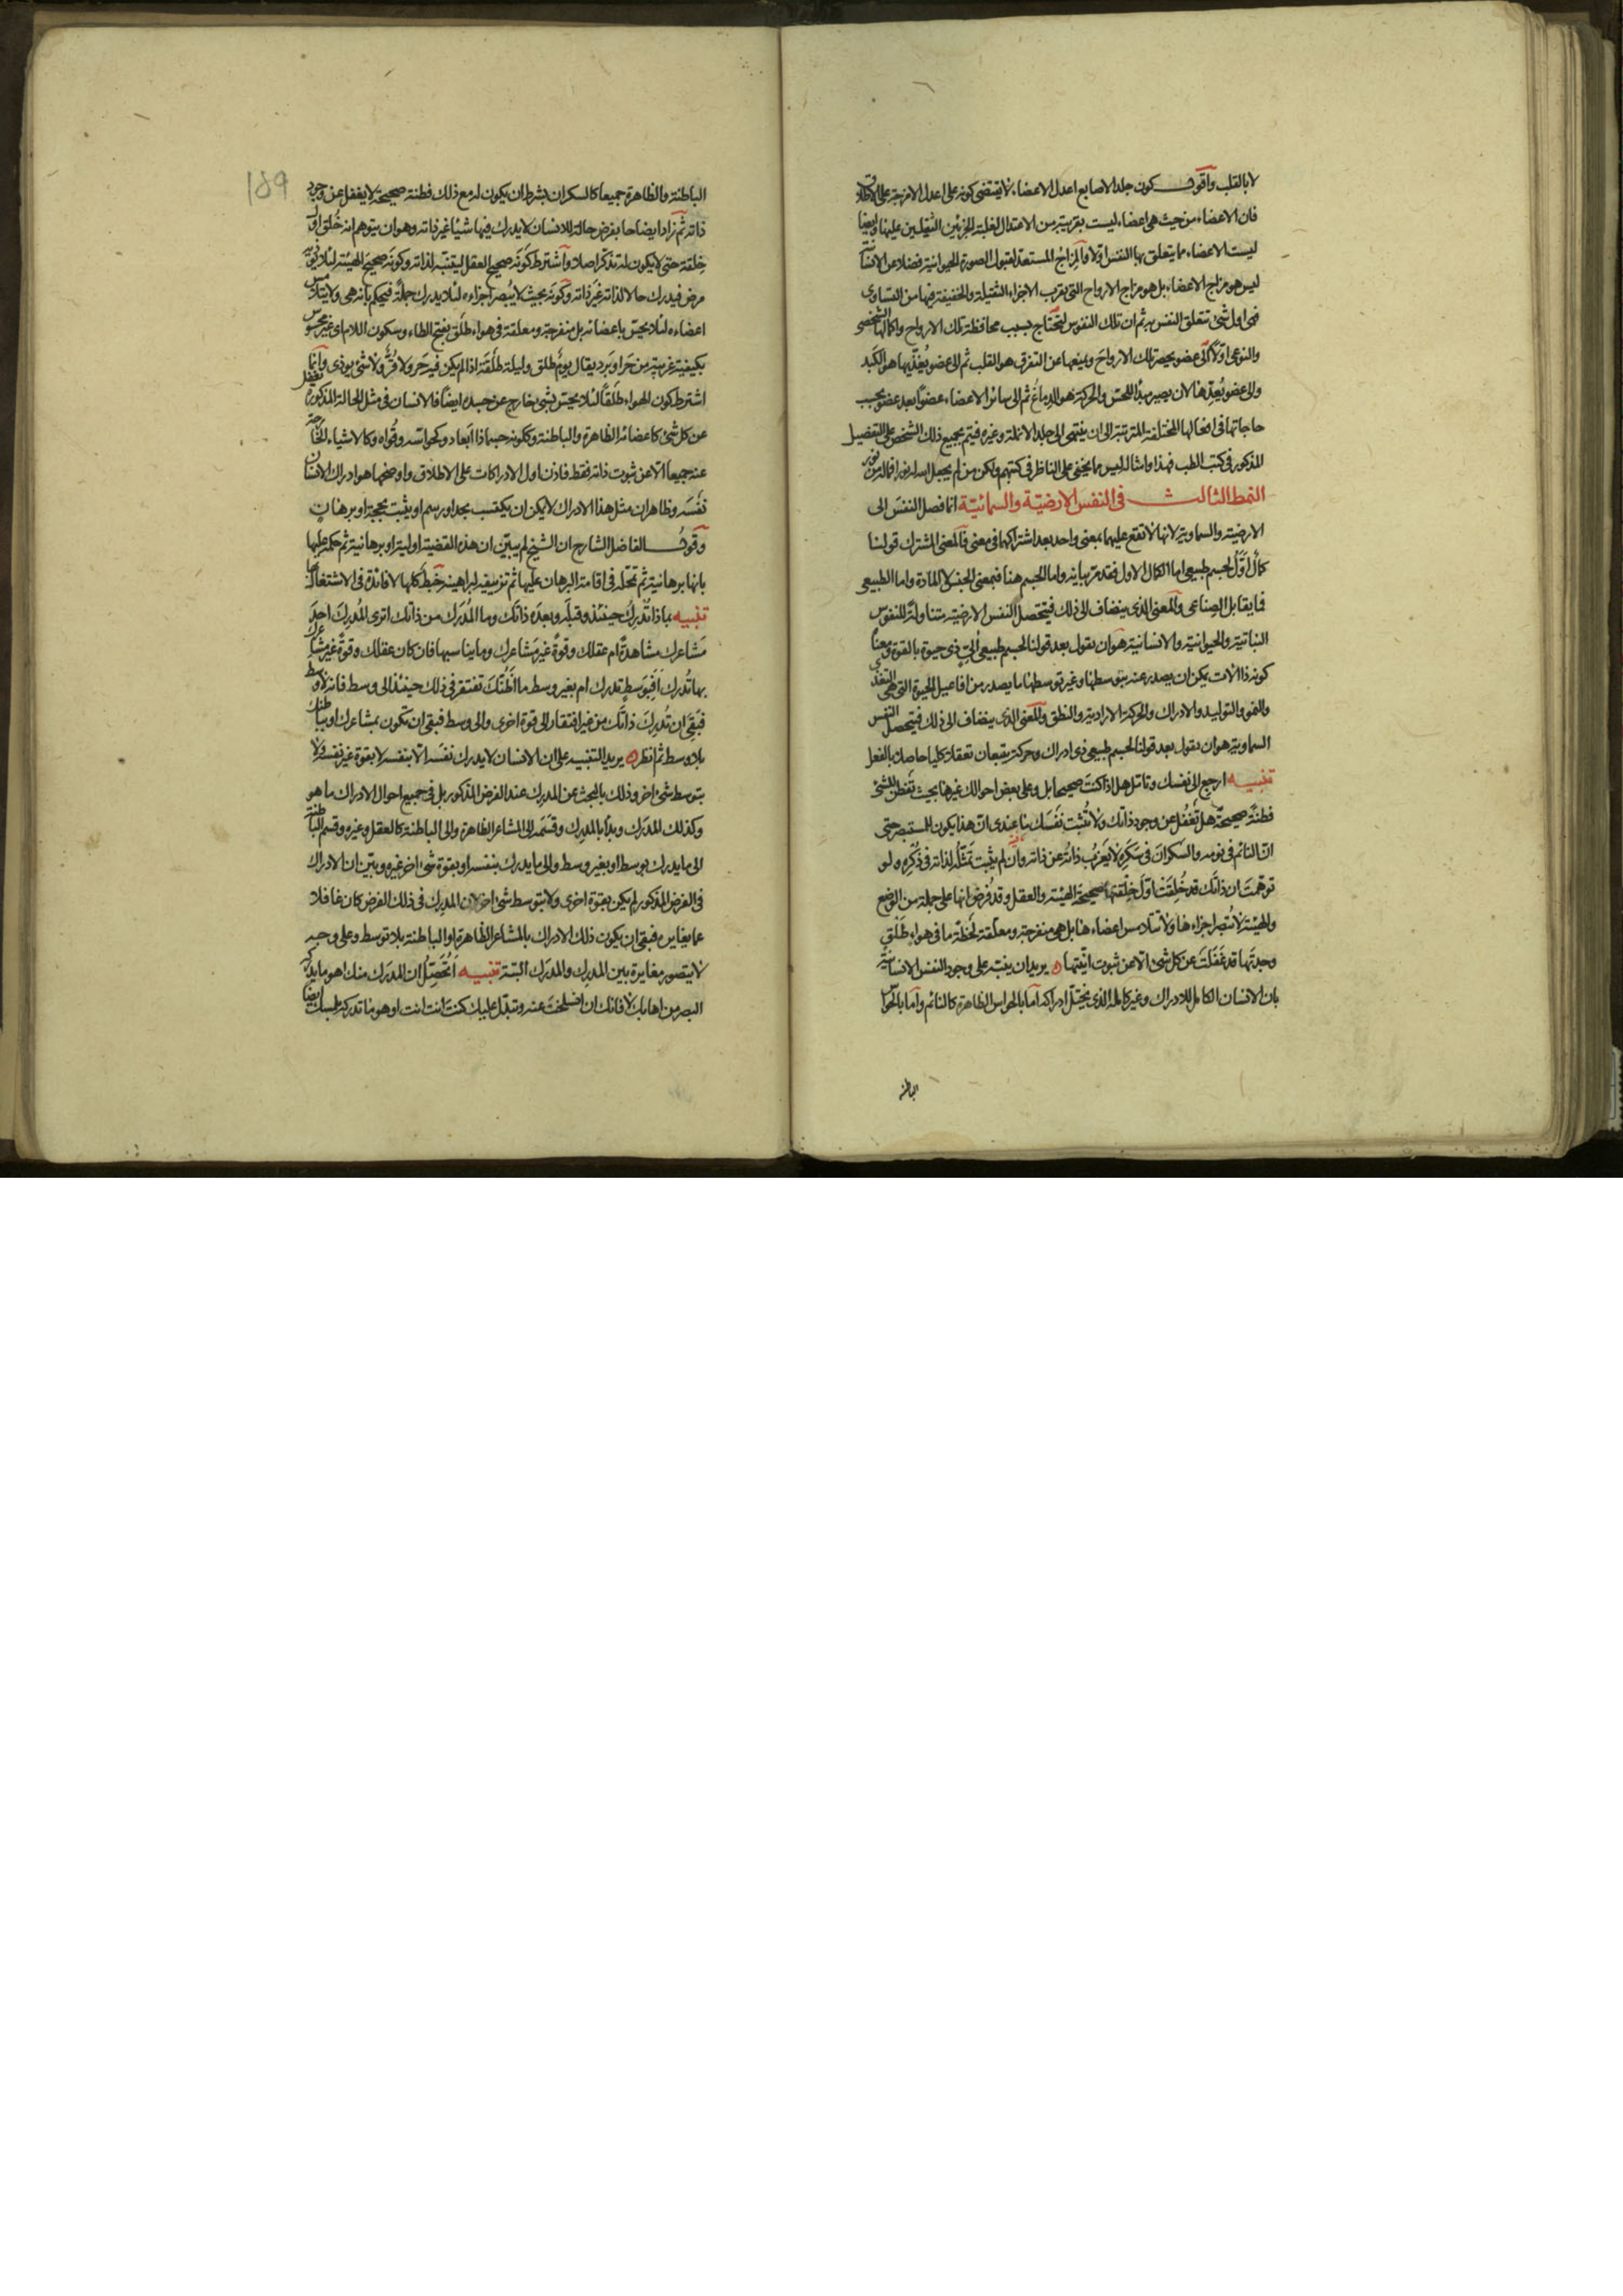 لا بالقلب واقول كون جلد الاصابع اعدل الاعضاء لا يقتضى كونه على اعدل الامزجة على الاطلاق
فان الاعضاء من حيث هى اعضاء ليست بقريبة من الاعتدال لغلبة الجزئين الثقيلين عليها وايضا
ليست الاعضاء مما يتعلق بها النفس اولا والمزاج المستعد لقبول الصورة الحيوانية فضلا عن الانسانية
ليس هو مزاج الاعضاء بل هو مزاج الارواح التى يقرب الاجزاء الثقيلة والخفيفة فيها من التساوى
فهى اول شئ تتعلق النفس به ثم ان تلك النفوس لتحتاج بسبب محافظة تلك الارواح واكمالها الشخصى
والنوعى اولا الى عضو يحصر تلك الارواح ويمنعها عن التفرق هو القلب ثم الى عضو يغذيها هو الكبد
والى عضو يعدها لان يصير مبدأ للحس والحركة هو الدماغ ثم الى سائر الاعضاء عضوا بعد عضو بحسب
حاجاتها فى افعالها المختلفة المترتبة الى ان ينتهى الى جلد الانملة وغيره فيتم بجميع ذلك الشخص على التفصيل
المذكور فى كتب الطب فهذا وامثاله ليس مما يخفى على الناظر فى كتبهم ولكن من لم يجعل الله له نورا فما له من نور
النمط الثالث فى النفس الارضية والسمائية انما فصل النفس الى
الارضية والسماوية لانها لا تقع عليهما بمعنى واحد بعد اشتراكهما فى معنى فالمعنى المشترك قولنا
كمال اول لجسم طبيعى اما الكمال الاول فقد مر بيانه واما الجسم هنا فبمعنى الجنس لا المادة واما الطبيعى
فما يقابل الصناعى والمعنى الذى ينضاف الى ذلك فيتحصل النفس الارضية متناولة للنفوس
النباتية والحيوانية والانسانية هو ان نقول بعد قولنا لجسم طبيعى الى ذى حيوة بالقوة ومعناه
كونه ذا آلات يمكن ان يصدر عنه بتوسطها وغير توسطها ما يصدر من افاعيل الحيوة التى هى التغذى
والنمو والتوليد والادراك والحركة الارادية والنطق والمعنى الذى ينضاف الى ذلك فيتحصل النفس
السماوية هو ان نقول بعد قولنا لجسم طبيعى ذى ادراك وحركة يتبعان تعقلا كليا حاصلا بالفعل
تنبيه ارجع الى نفسك وتامل هل اذا كنت صحيحا بل وعلى بعض احوالك غيرها بحيث تفطن للشئ
فطنة صحيحة هل تغفل عن وجود ذاتك ولا تثبت نفسك ما عندى ان هذا يكون للمستبصر حتى
ان النائم فى نومه والسكران فى سكره لا يعزب ذاته عن ذاته وان لم يثبت تمثله لذاته فى ذكره ولو
توهمت ان ذاتك قد خلقت اول خلقتها صحيحة الهيئة والعقل وقد فرض انها على جملة من الوضع
والهيئة لا تبصر اجزاءها ولا تتلامس اعضاءها بل هى منفرجة ومعلقة لحظة ما فى هواء طلق
وجدتها قد غفلت عن كل شئ الا عن ثبوت انيتها يريد ان ينبه على وجود النفس الانسانية
بان الانسان الكامل للادراك وغير كامله الذى يختل ادراكه اما بالحواس الظاهرة كالنائم واما بالحواس
الباطنة
189
الباطنة والظاهرة جميعا كالسكران بشرط ان يكون له مع ذلك فطنة صحيحة لا يغفل عن وجود
ذاته ثم زاد ايضاحا بفرض حالة للانسان لا يدرك فيها شيئا غير ذاته وهو ان يتوهم انه خلق اول
خلقة حتى لا يكون له تذكر اصلا واشترط كونه صحيح العقل ليتنبه لذاته وكونه صحيح الهيئة لئلا يؤذيه
مرض فيدرك حالا لذاته غير ذاته وكونه بحيث لا يبصر اجزاءه لئلا يدرك جملة فيحكم بانه هى ولا يتلامس
اعضاءه لئلا يحس باعضائه بل منفرجة ومعلقة فى هواء طلق بفتح الطاء وسكون اللام اى غير محسوس
بكيفية غريبة من حر او برد يقال يوم طلق وليلة طلقة اذا لم يكن فيه حر ولا قر ولا شئ يوذى وانما
اشترط كون الهواء طلقا لئلا يحس بشئ خارج عن جسده ايضا فالانسان فى مثل الحالة المذكورة يغفل
عن كل شئ كاعضائه الظاهرة والباطنة وككونه جسما ذا ابعاد وكحواسه وقواه وكالاشياء الخارجة
عنه جميعا الا عن ثبوت ذاته فقط فاذن اول الادراكات على الاطلاق واوضحها هو ادراك الانسان
نفسه وظاهر ان مثل هذا الادراك لا يمكن ان يكتسب بحد او رسم او يثبت بحجة او برهان
وقول الفاضل الشارح ان الشيخ لم يبين ان هذه القضية اولية او برهانية ثم حكمه عليها
بانها برهانية ثم تمحله فى اقامة البرهان عليها ثم تزييفه لبراهينه خبط كلها لا فائدة فى الاشتغال بها
تنبيه بماذا تدرك حينئذ وقبله وبعده ذاتك وما المدرك من ذاتك اترى المدرك احد
مشاعرك مشاهدة ام عقلك وقوة غير مشاعرك وما يناسبها فان كان عقلك وقوة غير مشاعرك
بها تدرك افبوسط تدرك ام بغير وسط ما اظنك تفتقر فى ذلك حينئذ الى وسط فانه لا وسط
فبقى ان تدرك ذاتك من غير افتقار الى قوة اخرى والى وسط فبقى ان تكون بمشاعرك او بباطنك
بلا وسط ثم انظر يريد التنبيه على ان الانسان لا يدرك نفسه الا بنفسه لا بقوة غير نفسه ولا
بتوسط شئ اخر وذلك بالبحث عن المدرك عند الفرض المذكور بل فى جميع احوال الادراك ما هو
وكذلك المدرك وبدأ بالمدرك وقسمه الى المشاعر الظاهرة والى الباطنة كالعقل وغيره وقسم الباطنة
الى ما يدرك بوسط او بغير وسط والى ما يدرك بنفسه او بقوة شئ اخر غيره وبين ان الادراك
فى الفرض المذكور لم يكن بقوة اخرى ولا بتوسط شئ اخر لان المدرك فى ذلك الفرض كان غافلا
عما يغايره فبقى ان يكون ذلك الادراك بالمشاعر الظاهرة او الباطنة بلا توسط وعلى وجه
لا يتصور مغايرة بين المدرك والمدرك البتة تنبيه اتحصل ان المدرك منك اهو ما يدركه
البصر من اهابك لا فانك ان انسلخت عنه وتبدل عليك كنت انت انت او هو ما تدركه بلمسك ايضا